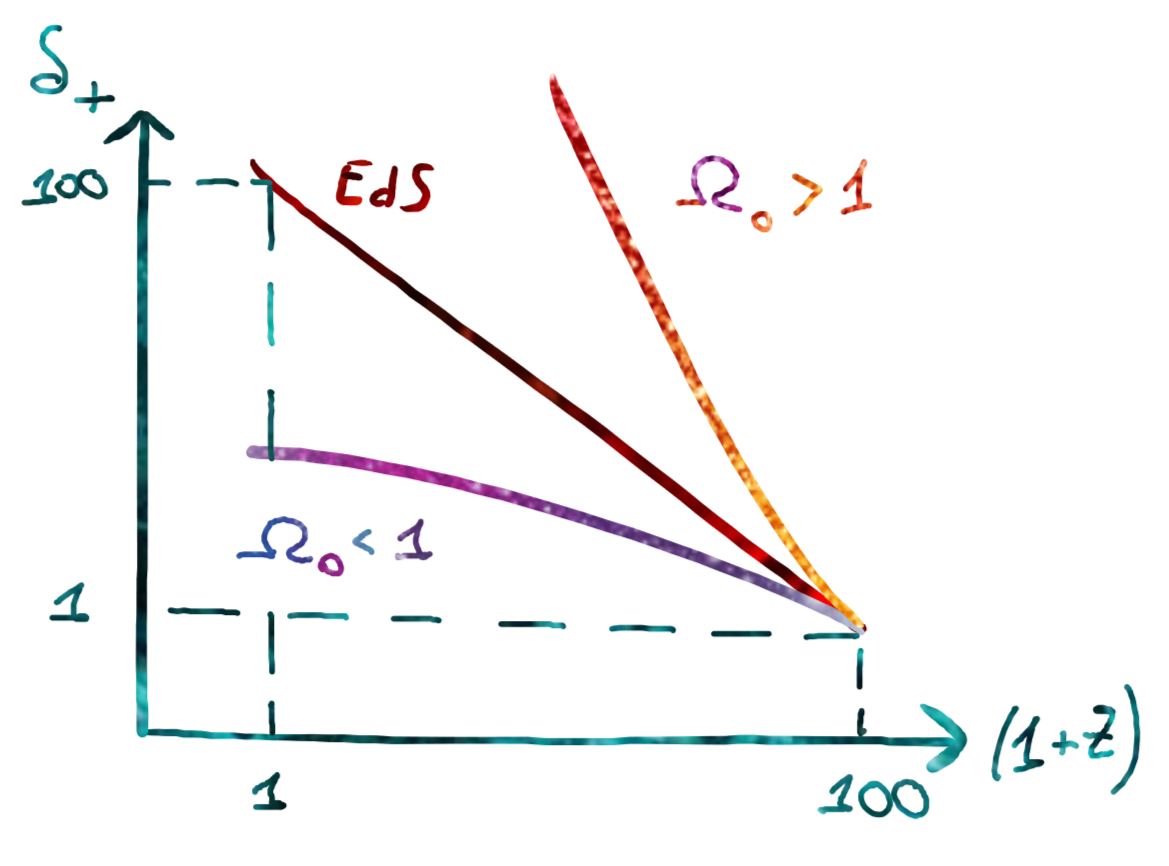 δ₊
100
EdS
Ω₀ > 1
Ω₀ < 1
1
(1+z)
1
100